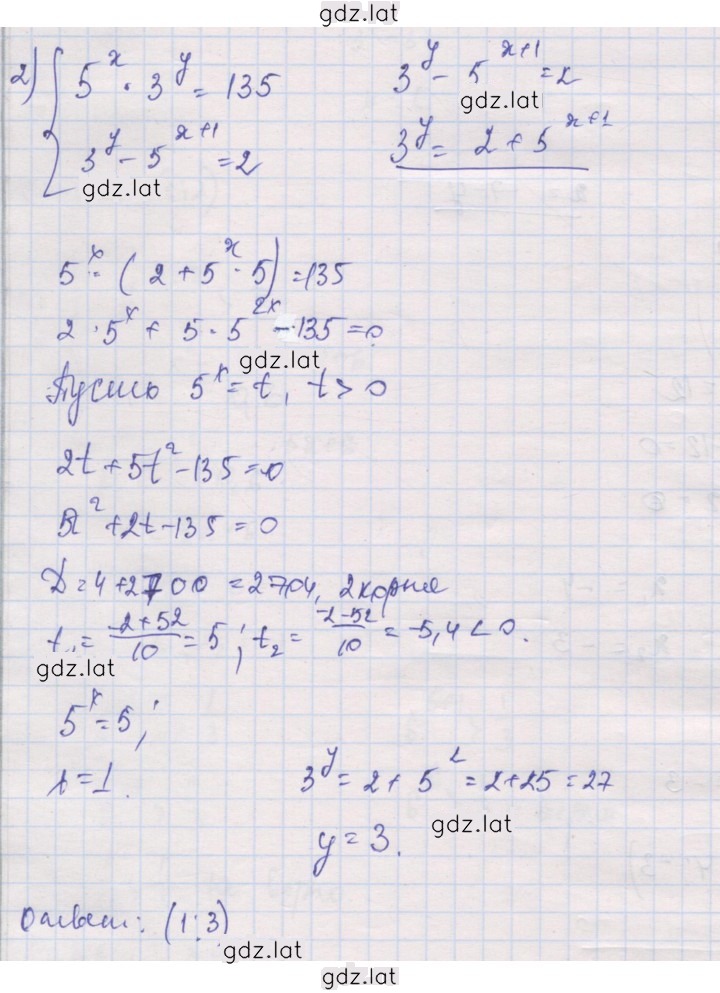 gdz.lat
2) { 5^x · 3^y = 135
3^y - 5^{x+1} = 2
3^y - 5^{x+1} = 2
gdz.lat
3^y = 2 + 5^{x+1}
gdz.lat
5^x = (2 + 5^x · 5) = 135
2 · 5^x + 5 · 5^{2x} - 135 = 0
gdz.lat
Пусть 5^x = t, t > 0
2t + 5t^2 - 135 = 0
5t^2 + 2t - 135 = 0
D = 4 + 2700 = 2704, 2 корня
t_1 = \frac{-2+52}{10} = 5; t_2 = \frac{-2-52}{10} = -5,4 < 0.
gdz.lat
5^x = 5;
x = 1.
3^y = 2 + 5^2 = 2 + 25 = 27
gdz.lat
y = 3.
Ответ: (1; 3)
gdz.lat
gdz.lat